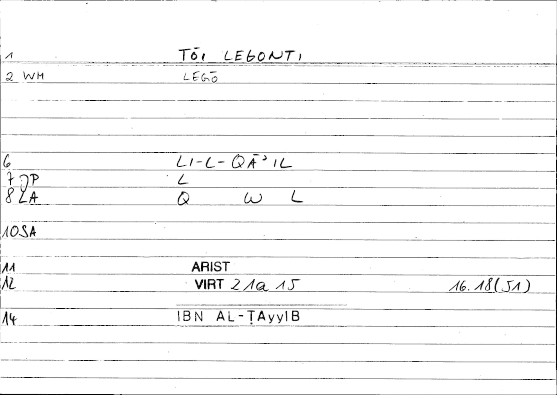 1 TŌI LEGONTI
2 WH LEGŌ
6 LI-L-QĀʾIL
7 JP L
8 LA Q W L
10 SA
11 ARIST
12 VIRT 21a 15 16.18(51)
14 IBN AL-ṬAyyIB